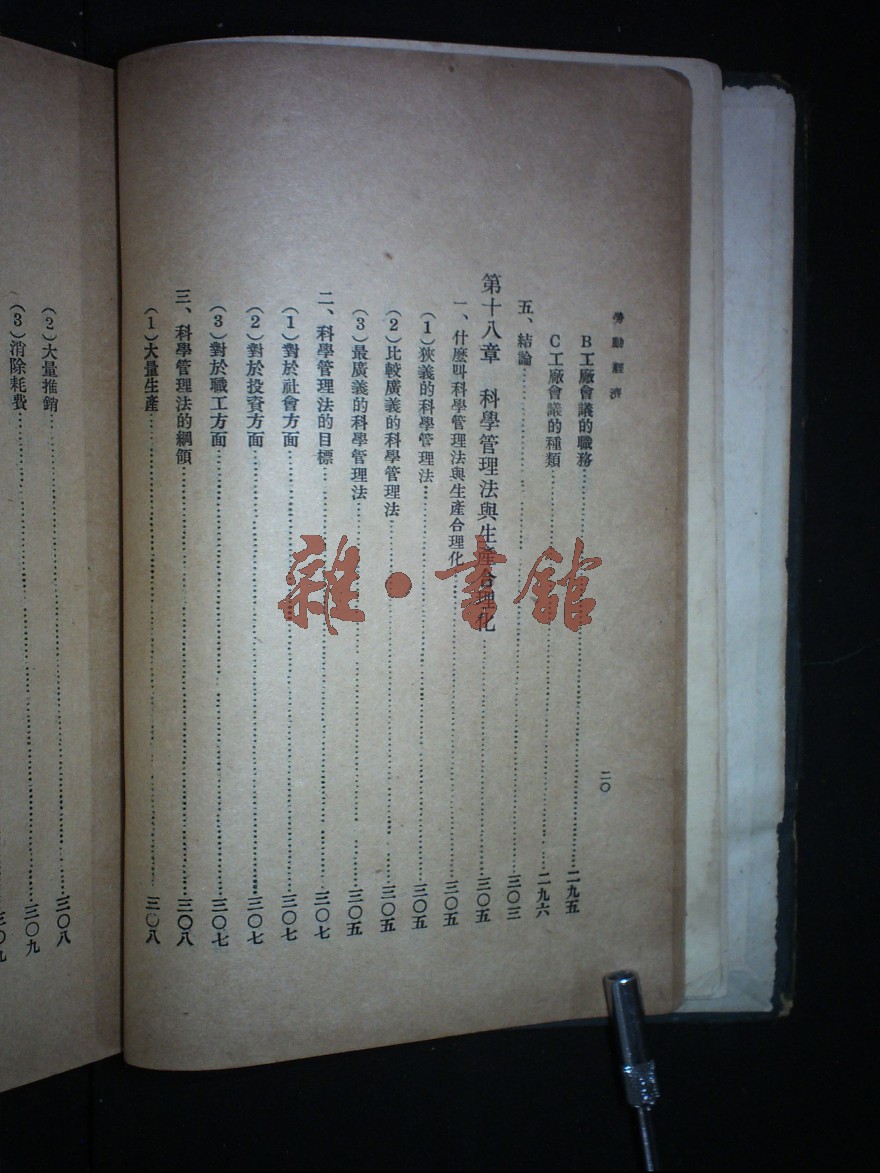 勞動經濟
二〇
B工廠會議的職務……二九五
C工廠會議的種類……二九六
五、結論……三〇三
第十八章　科學管理法與生產合理化……三〇五
一、什麼叫科學管理法與生產合理化……三〇五
（1）狹義的科學管理法……三〇五
（2）比較廣義的科學管理法……三〇五
（3）最廣義的科學管理法……三〇五
二、科學管理法的目標……三〇七
（1）對於社會方面……三〇七
（2）對於投資方面……三〇七
（3）對於職工方面……三〇七
三、科學管理法的綱領……三〇八
（1）大量生產……三〇八
（2）大量推銷……三〇八
（3）消除耗費……三〇九
三〇九
雜·書館